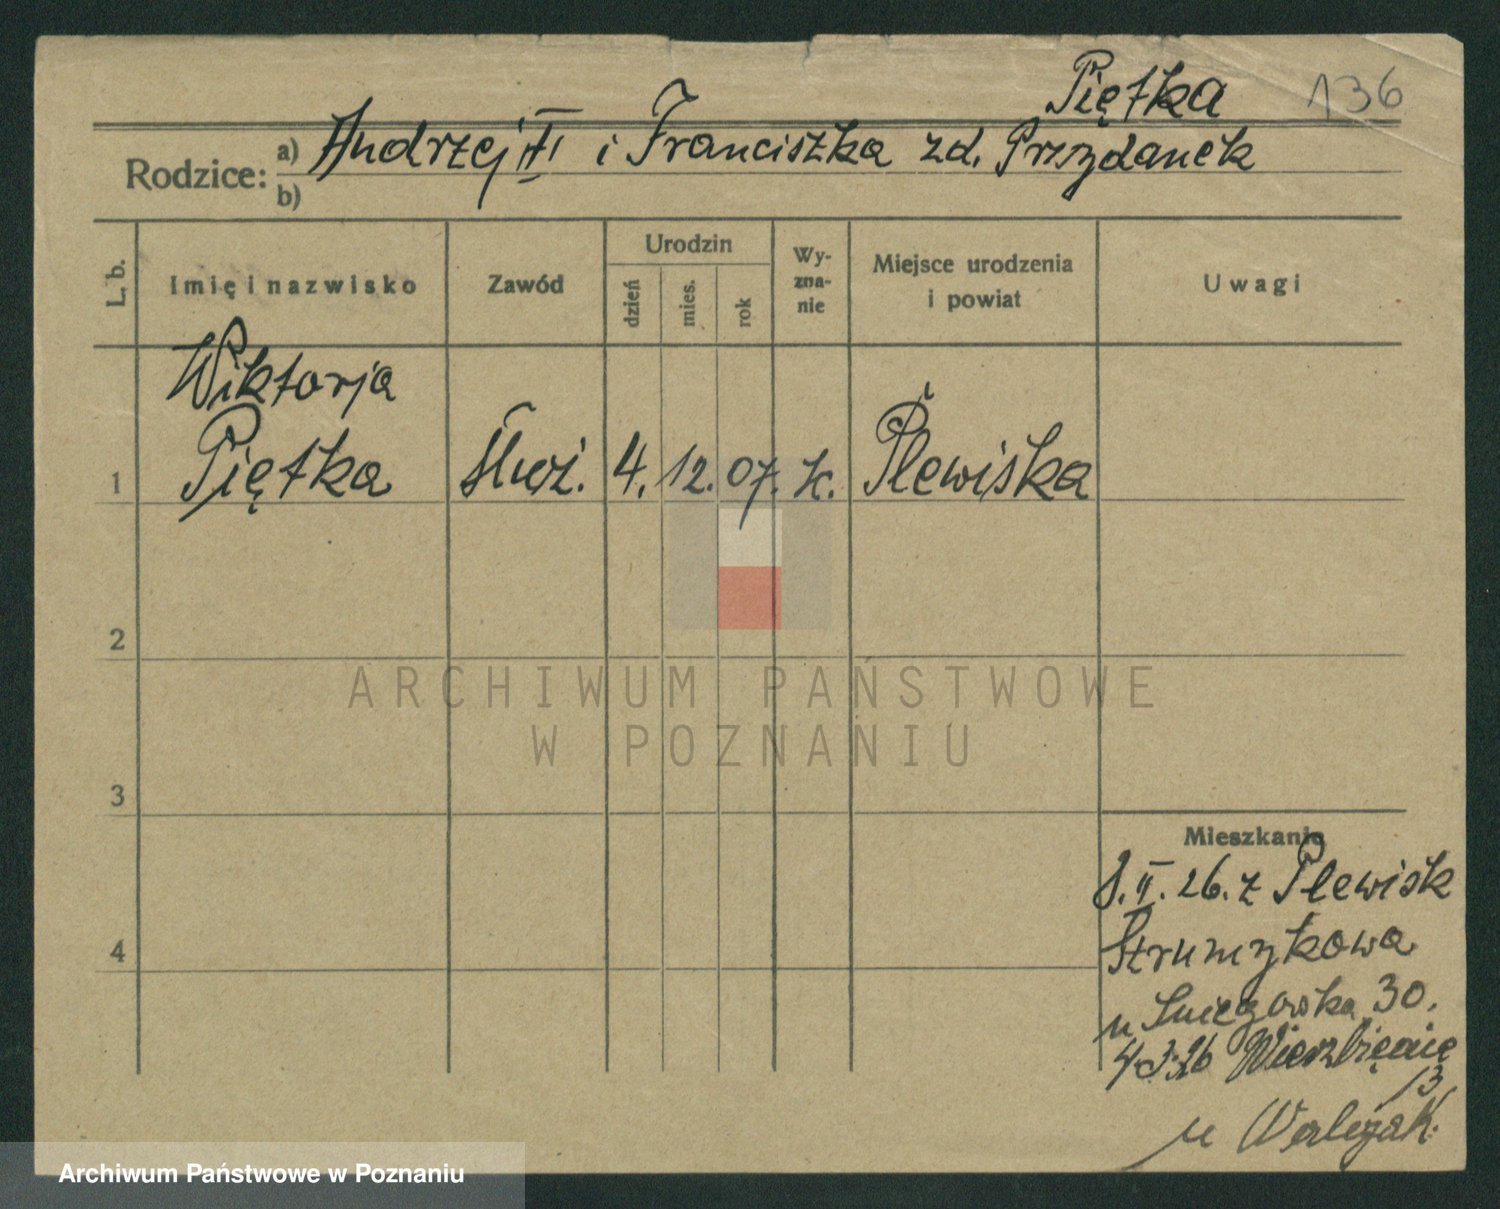 Piętka 136
Rodzice: a) Andrzej II i Franciszka zd. Przydanek
b)
L. b. Imię i nazwisko Zawód Urodzin dzień mies. rok Wy-zna-nie Miejsce urodzenia i powiat Uwagi
Wiktorja
1 Piętka służ. 4. 12. 07. k. Plewiska
2
ARCHIWUM PAŃSTWOWE
W POZNANIU
3
Mieszkanie
8.II.26. z Plewisk
4 Strumykowa
u 30.
4 3.26 Wierzbięcic
13
u
Archiwum Państwowe w Poznaniu